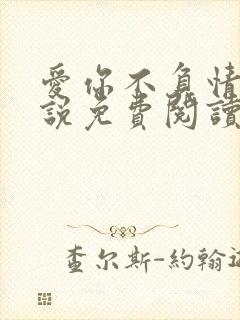 愛你不負情
說免費閱讀
查尔斯-約翰遜